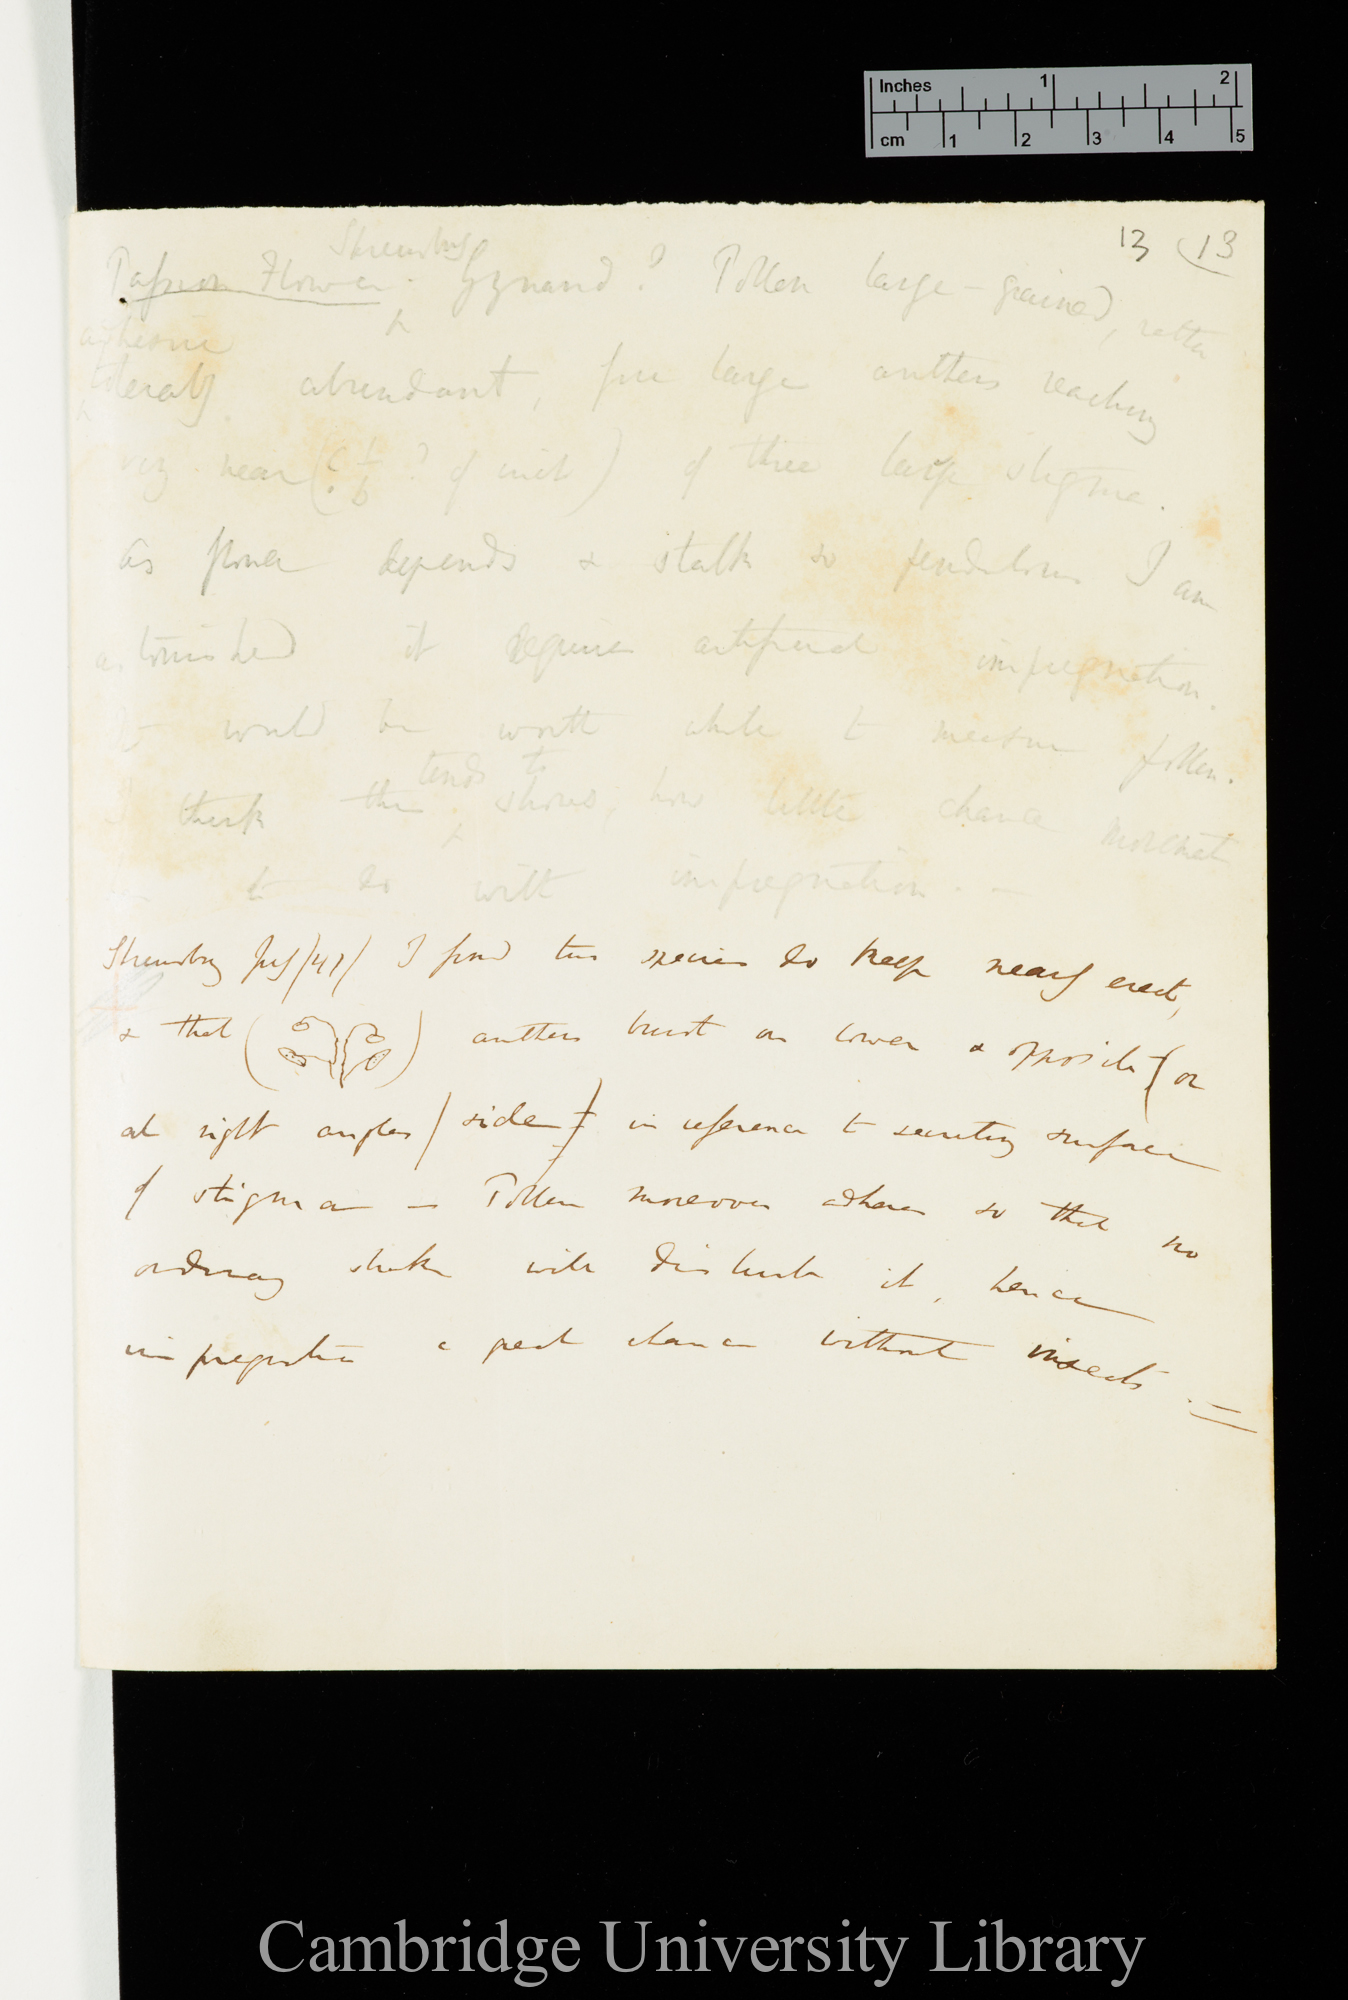 Inches 1 2
cm 1 2 3 4 5
13 (13
Shrewsbury
Passion Flower. Gynand? Pollen large-grained, rather
adhesive
tolerably abundant, five large anthers reaching
very near (? 1/6 ? of inch) of three large stigma.
As flower depends & stalk so pendulous I am
astonished it requires artificial impregnation.
It would be worth while to measure pollen.
tends to
I think this shows, how little chance movement
has to do with impregnation. —
Shrewsbury July /41/ I find this species do keep nearly erect,
& that ( ) anthers burst on lower & opposite (or
at right angles / side) in reference to secreting surface
of stigma — Pollen moreover adheres so that no
ordinary shake will disturb it, hence
impregnation a great chance without insects. —
Cambridge University Library